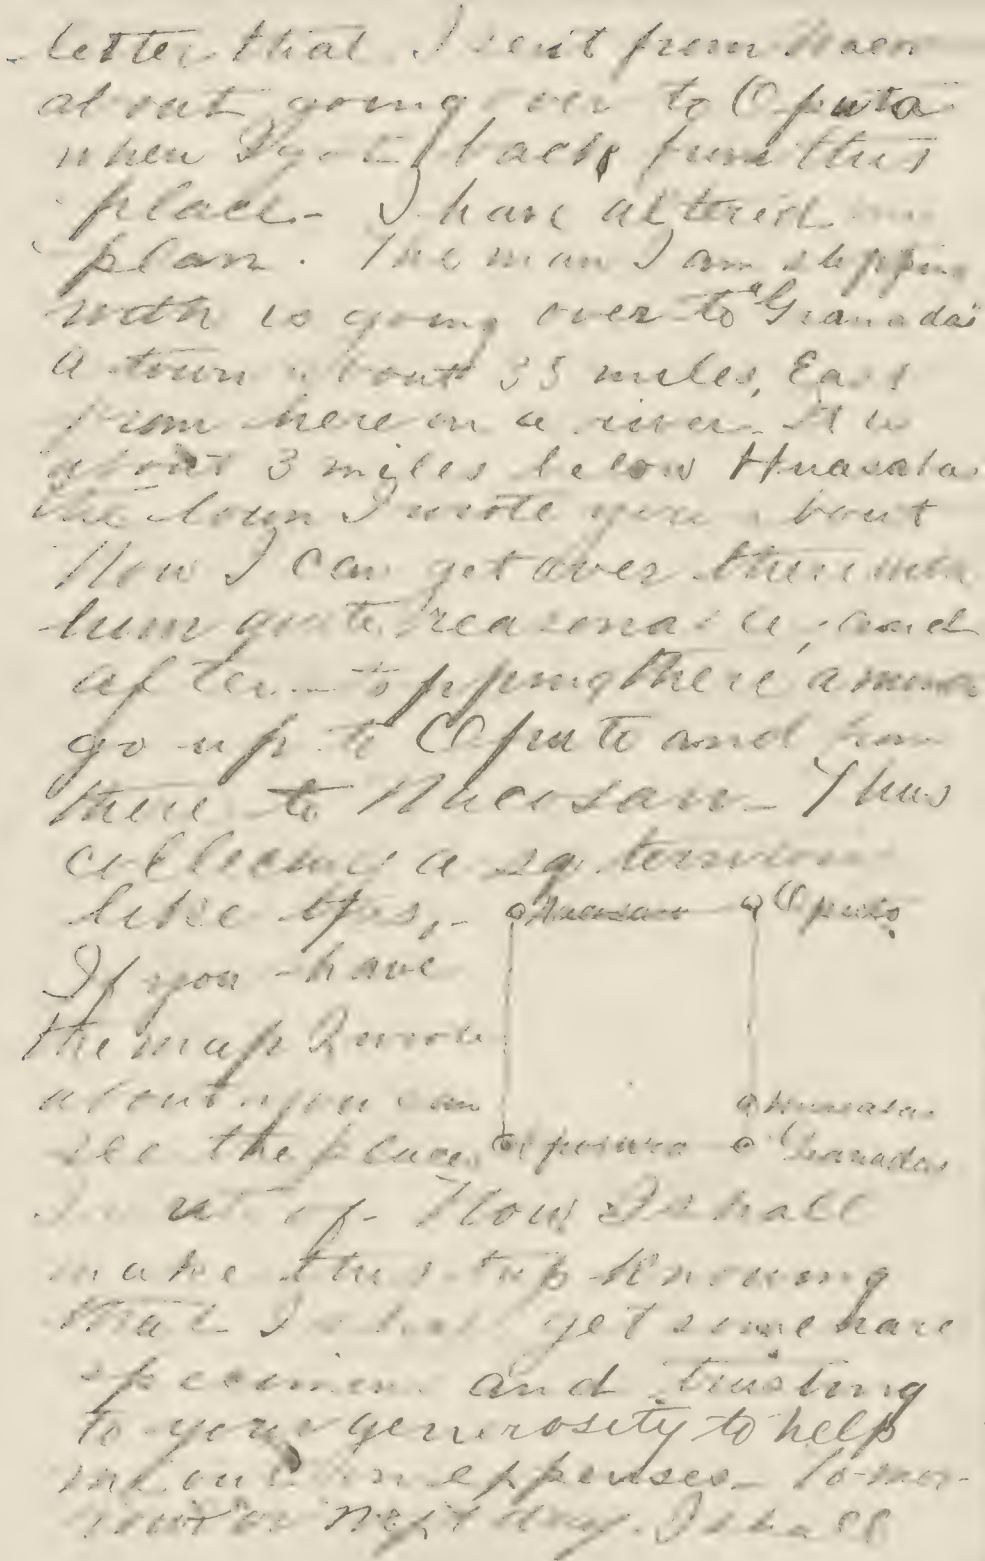 letter that I sent from Naco
about going over to Oputa
when I got back from this
place - I have altered my
plan. The man I am stopping
with is going over to "Granadas"
a town about 35 miles, East
from here on a river. It is
about 3 miles below Huasabas
the town I wrote you about
Now I can get over there with
him quite reasonable, and
after stopping there a
go up to Oputo and from
there to Nacosari - Thus
collecting a sq. territory
like this, -
Nacosari Oputo.
If you have
the map I wrote
about you can
Huasabas
see the places
Oposura Granadas
I write of - Now I shall
make this trip knowing
that I shall get some rare
specimens and trusting
to your generosity to help
me out in expenses - To-mor-
row or next day I shall